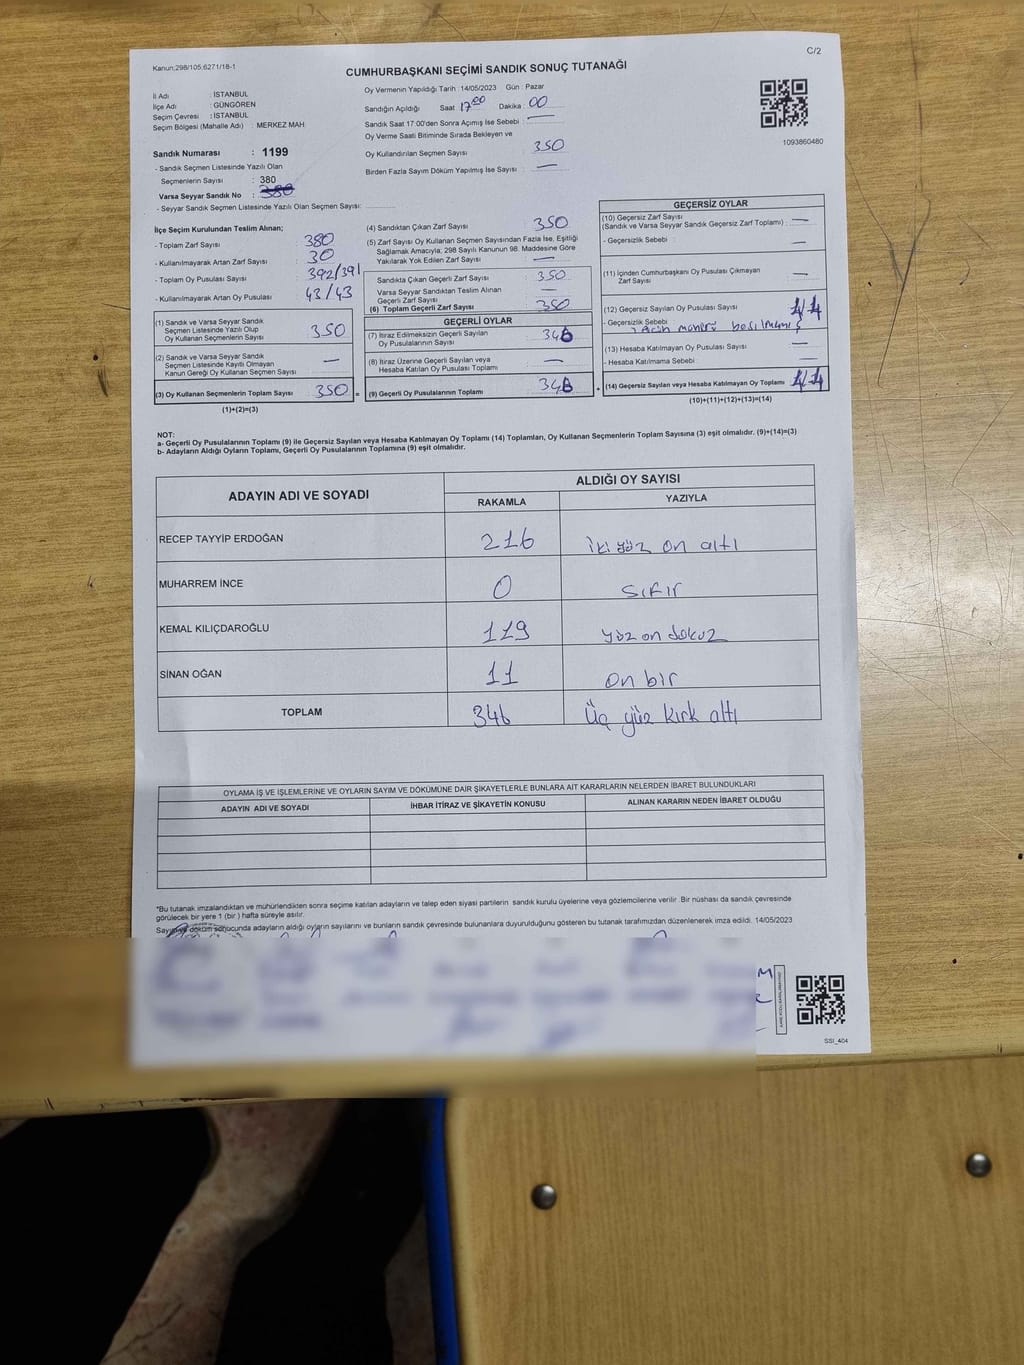 C/2
Kanun;298/105,6271/18-1
CUMHURBAŞKANI SEÇİMİ SANDIK SONUÇ TUTANAĞI
İl Adı : İSTANBUL
İlçe Adı : GÜNGÖREN
Seçim Çevresi : İSTANBUL
Seçim Bölgesi (Mahalle Adı) : MERKEZ MAH
Sandık Numarası : 1199
- Sandık Seçmen Listesinde Yazılı Olan
Seçmenlerin Sayısı : 380
Varsa Seyyar Sandık No :
- Seyyar Sandık Seçmen Listesinde Yazılı Olan Seçmen Sayısı:
Oy Vermenin Yapıldığı Tarih : 14/05/2023 Gün : Pazar
Sandığın Açıldığı Saat 17:00 Dakika : 00
Sandık Saat 17:00'den Sonra Açımış İse Sebebi : —
Oy Verme Saati Bitiminde Sırada Bekleyen ve
Oy Kullandırılan Seçmen Sayısı : 350
Birden Fazla Sayım Döküm Yapılmış İse Sayısı : —
1093860480
İlçe Seçim Kurulundan Teslim Alınan;
- Toplam Zarf Sayısı : 380
- Kullanılmayarak Artan Zarf Sayısı : 30
- Toplam Oy Pusulası Sayısı : 392/391
- Kullanılmayarak Artan Oy Pusulası : 43/43
(1) Sandık ve Varsa Seyyar Sandık
Seçmen Listesinde Yazılı Olup
Oy Kullanan Seçmenlerin Sayısı 350
(2) Sandık ve Varsa Seyyar Sandık
Seçmen Listesinde Kayıtlı Olmayan
Kanun Gereği Oy Kullanan Seçmen Sayısı —
(3) Oy Kullanan Seçmenlerin Toplam Sayısı 350 =
(1)+(2)=(3)
(4) Sandıktan Çıkan Zarf Sayısı : 350
(5) Zarf Sayısı Oy Kullanan Seçmen Sayısından Fazla İse, Eşitliği
Sağlamak Amacıyla; 298 Sayılı Kanunun 98. Maddesine Göre
Yakılarak Yok Edilen Zarf Sayısı : —
Sandıkta Çıkan Geçerli Zarf Sayısı : 350
Varsa Seyyar Sandıktan Teslim Alınan
Geçerli Zarf Sayısı : —
(6) Toplam Geçerli Zarf Sayısı : 350
GEÇERLİ OYLAR
(7) İtiraz Edilmeksizin Geçerli Sayılan
Oy Pusulalarının Sayısı : 346
(8) İtiraz Üzerine Geçerli Sayılan veya
Hesaba Katılan Oy Pusulası Toplamı : —
(9) Geçerli Oy Pusulalarının Toplamı 346 +
GEÇERSİZ OYLAR
(10) Geçersiz Zarf Sayısı
(Sandık ve Varsa Seyyar Sandık Geçersiz Zarf Toplamı) : —
- Geçersizlik Sebebi : —
(11) İçinden Cumhurbaşkanı Oy Pusulası Çıkmayan
Zarf Sayısı : —
(12) Geçersiz Sayılan Oy Pusulası Sayısı :
- Geçersizlik Sebebi : Tercih mührü basılmamış
(13) Hesaba Katılmayan Oy Pusulası Sayısı : —
- Hesaba Katılmama Sebebi : —
(14) Geçersiz Sayılan veya Hesaba Katılmayan Oy Toplamı
(10)+(11)+(12)+(13)=(14)
NOT:
a- Geçerli Oy Pusulalarının Toplamı (9) ile Geçersiz Sayılan veya Hesaba Katılmayan Oy Toplamı (14) Toplamları, Oy Kullanan Seçmenlerin Toplam Sayısına (3) eşit olmalıdır. (9)+(14)=(3)
b- Adayların Aldığı Oyların Toplamı, Geçerli Oy Pusulalarının Toplamına (9) eşit olmalıdır.
ADAYIN ADI VE SOYADI ALDIĞI OY SAYISI
RAKAMLA YAZIYLA
RECEP TAYYİP ERDOĞAN 216 iki yüz on altı
MUHARREM İNCE 0 sıfır
KEMAL KILIÇDAROĞLU 119 yüz on dokuz
SİNAN OĞAN 11 on bir
TOPLAM 346 üç yüz kırk altı
OYLAMA İŞ VE İŞLEMLERİNE VE OYLARIN SAYIM VE DÖKÜMÜNE DAİR ŞİKAYETLERLE BUNLARA AİT KARARLARIN NELERDEN İBARET BULUNDUKLARI
ADAYIN ADI VE SOYADI İHBAR İTİRAZ VE ŞİKAYETİN KONUSU ALINAN KARARIN NEDEN İBARET OLDUĞU
*Bu tutanak imzalandıktan ve mühürlendikten sonra seçime katılan adayların ve talep eden siyasi partilerin sandık kurulu üyelerine veya gözlemcilerine verilir. Bir nüshası da sandık çevresinde
görülecek bir yere 1 (bir ) hafta süreyle asılır.
Sayım ve döküm sonucunda adayların aldığı oyların sayılarını ve bunların sandık çevresinde bulunanlara duyurulduğunu gösteren bu tutanak tarafımızdan düzenlenerek imza edildi. 14/05/2023
SSI_404